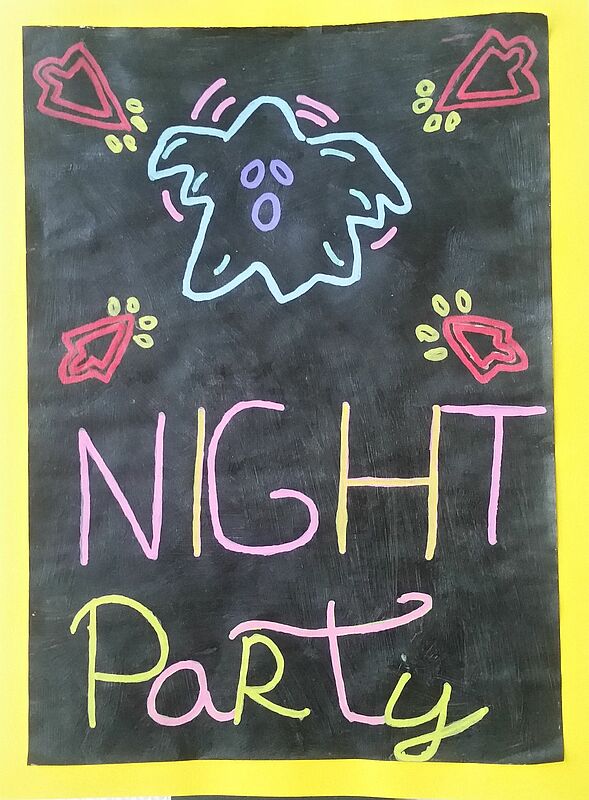 NIGHT
PaRty